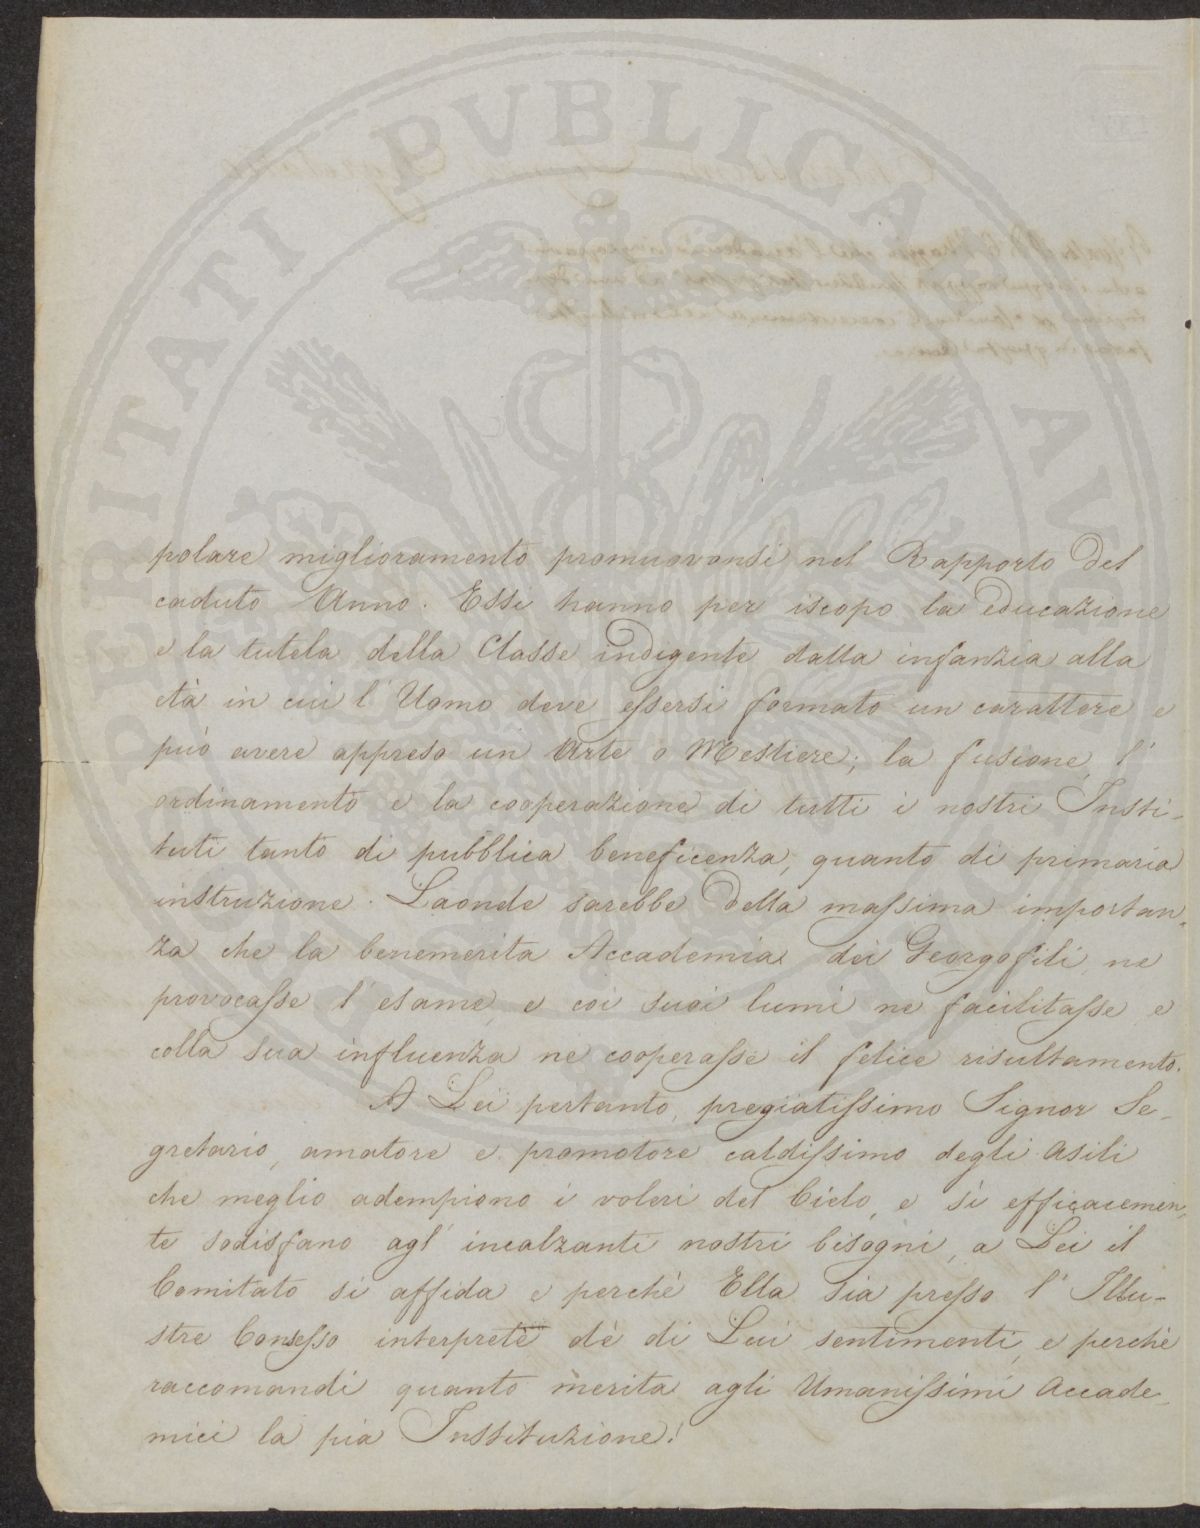 PROSPERITATI PVBLICAE AVGENDAE
polare miglioramento promuovonsi nel Rapporto del
caduto Anno. Esse hanno per iscopo la educazione
e la tutela della Classe indigente dalla infanzia alla
età in cui l'Uomo deve essersi formato un carattere e
può avere appreso un Arte o Mestiere; la fusione, l'
ordinamento e la cooperazione di tutti i nostri Insti-
tuti tanto di pubblica beneficenza, quanto di primaria
instruzione. Laonde sarebbe della massima importan-
za che la benemerita Accademia dei Georgofili ne
provocasse l'esame, e coi suoi lumi ne facilitasse e
colla sua influenza ne cooperasse il felice risultamento.
A Lei pertanto, pregiatissimo Signor Se-
gretario, amatore e promotore caldissimo degli Asili
che meglio adempiono i voleri del Cielo, e sì efficacemen-
te sodisfano agl'incalzanti nostri bisogni, a Lei il
Comitato si affida e perchè Ella sia presso l'Illu-
stre Consesso interprete dè di Lui sentimenti, e perchè
raccomandi quanto merita agli Umanissimi Accade-
mici la pia Instituzione!